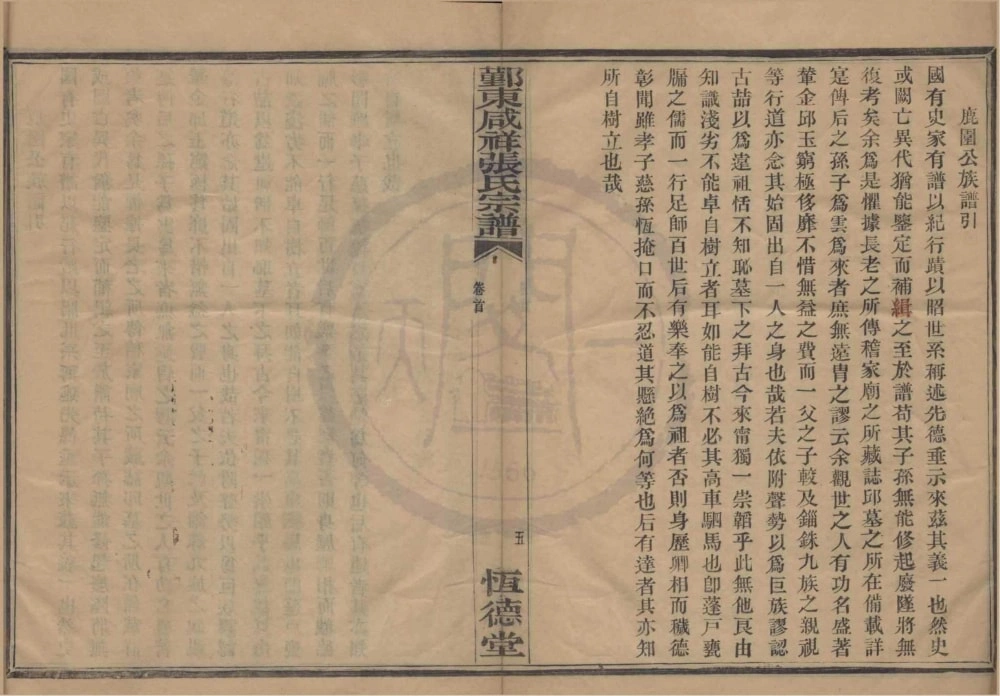 鹿園公族譜引
國有史家有譜以紀行蹟以昭世系稱述先德垂示來茲其義一也然史
或闕亡異代猶能鑒定而補緝之至於譜苟其子孫無能修起廢墜將無
復考矣余爲是懼據長老之所傳稽家廟之所藏誌邱墓之所在備載詳
寔俾后之孫子爲雲爲來者庶無遠胄之謬云余觀世之人有功名盛著
輦金邱玉窮極侈靡不惜無益之費而一父之子較及錙銖九族之親視
等行道亦念其始固出自一人之身也哉若夫依附聲勢以爲巨族謬認
古喆以爲遠祖恬不知恥墓下之拜古今來甯獨一崇韜乎此無他良由
知識淺劣不能卓自樹立者耳如能自樹不必其高車駟馬也卽蓬戸甕
牖之儒而一行足師百世后有樂奉之以爲祖者否則身歷卿相而穢德
彰聞雖孝子慈孫恆掩口而不忍道其懸絶爲何等也后有達者其亦知
所自樹立也哉
鄞東咸祥張氏宗譜
卷首
五
恆德堂